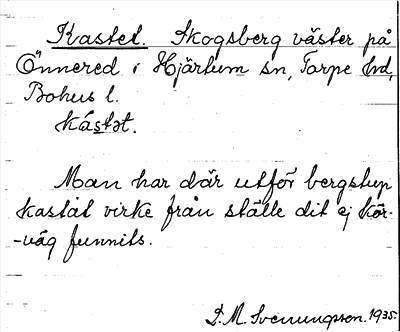 Kastet. Skogsberg väster på
Önnered i Hjärtum sn, Torpe hd,
Bohus l.
kástət.
Man har där utför bergstup
kastat virke från ställe dit ej kör-
-väg funnits.
S. M. Svenungsson. 1935.